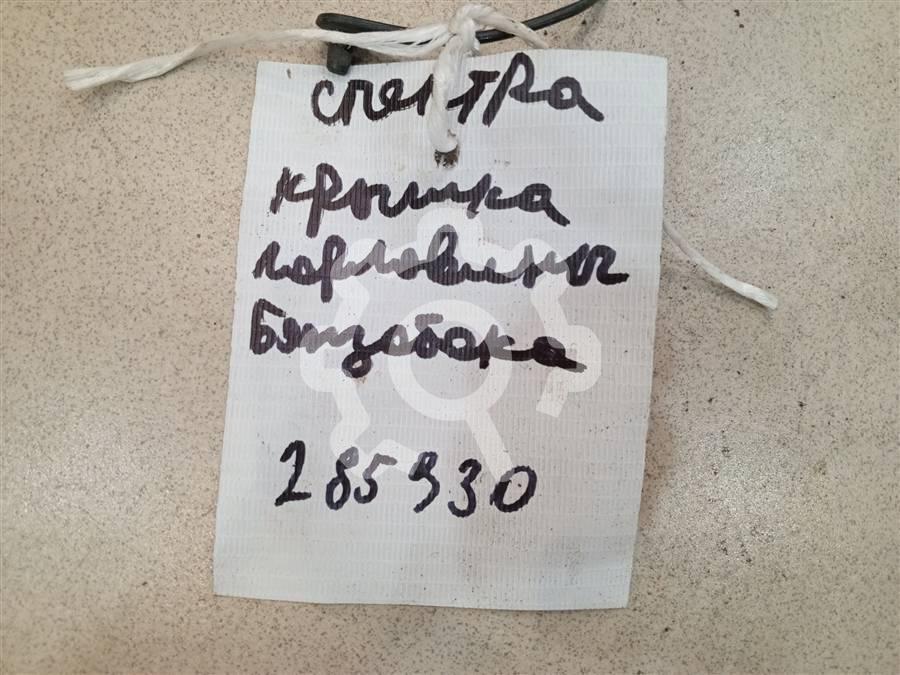 спектра
крышка
горловины
Бензобака
285930